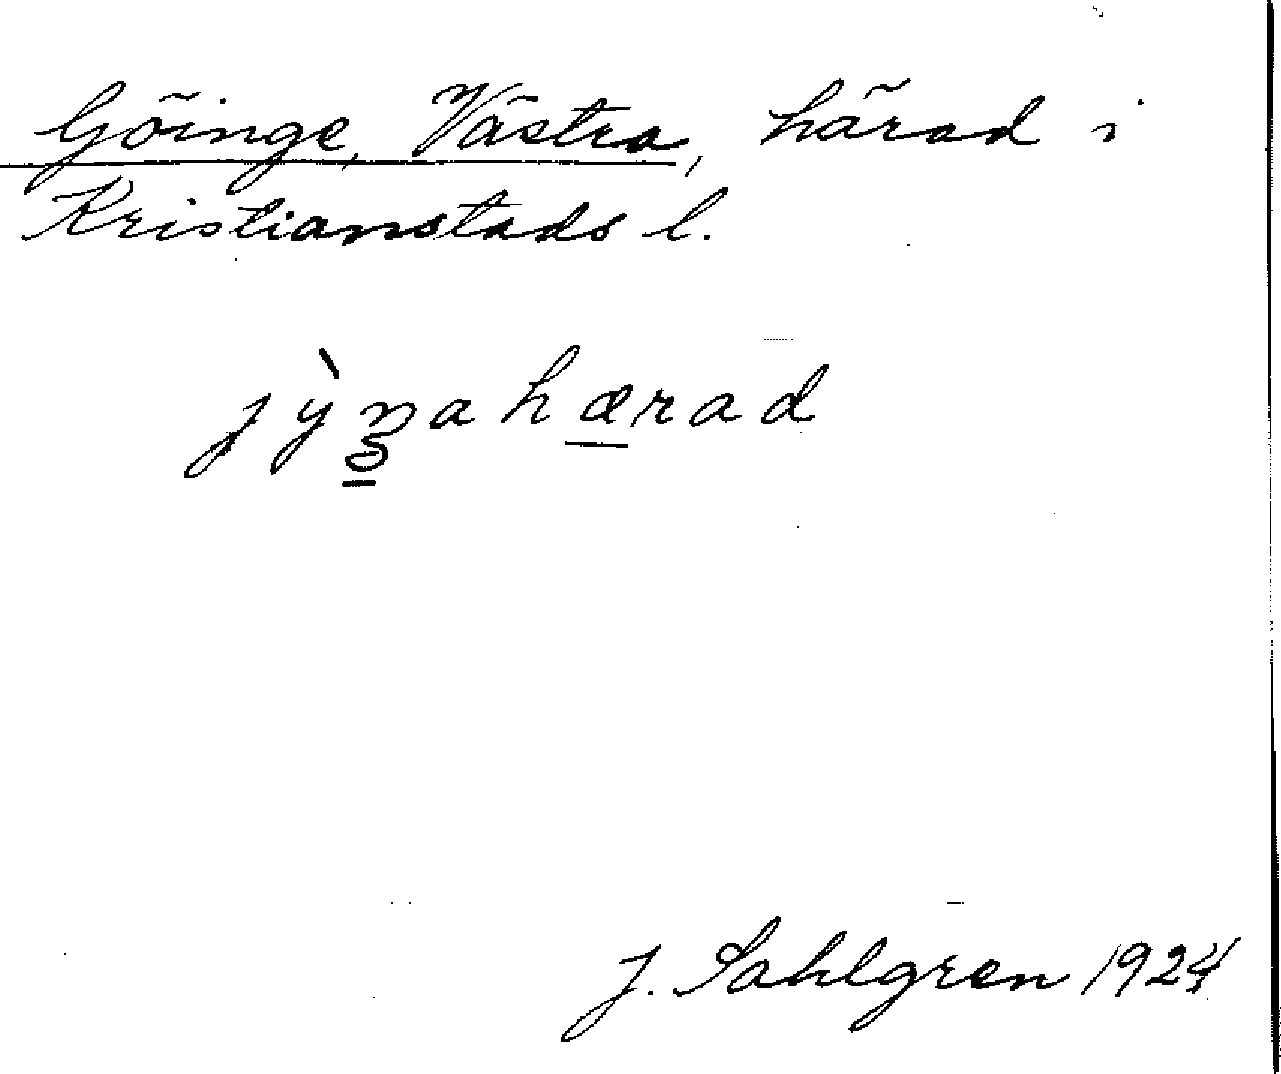 Göinge, Västra, härad i
Kristianstads l.
jỳŋahærad
J. Sahlgren 1924